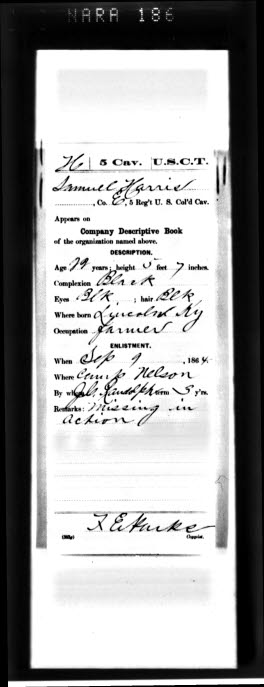 NARA 186
H | 5 Cav. | U.S.C.T.
Samuel Harris
, Co. E, 5 Reg't U. S. Col'd Cav.
Appears on
Company Descriptive Book
of the organization named above.
DESCRIPTION.
Age 29 years; height 5 feet 7 inches.
Complexion Black
Eyes Blk ; hair Blk
Where born Lincoln Ky
Occupation farmer
ENLISTMENT.
When Sep 9 , 1864.
Where Camp Nelson
By whom Randolph term 3 y'rs.
Remarks: Missing in
action
Copyist.